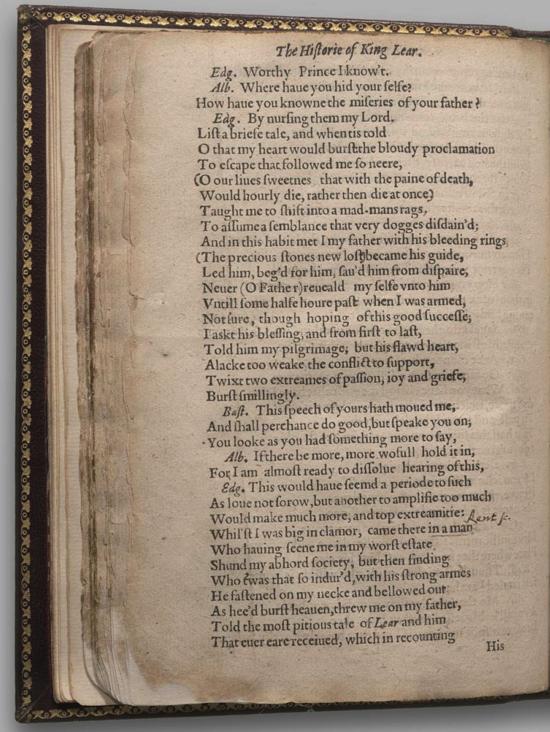 The Historie of King Lear.
Edg. Worthy Prince I know't.
Alb. Where haue you hid your selfe?
How haue you knowne the miseries of your father?
Edg. By nursing them my Lord.
List a briefe tale, and when tis told
O that my heart would burst the bloudy proclamation
To escape that followed me so neere,
(O our liues sweetnes that with the paine of death,
Would hourly die, rather then die at once)
Taught me to shift into a mad-mans rags,
To assume a semblance that very dogges disdain'd;
And in this habit met I my father with his bleeding rings,
(The precious stones new lost)became his guide,
Led him, beg'd for him, sau'd him from dispaire,
Neuer (O Father)reueald my selfe vnto him
Vntill some halfe houre past when I was armed,
Not sure, though hoping of this good successe;
I askt his blessing, and from first to last,
Told him my pilgrimage; but his flawd heart,
Alacke too weake the conflict to support,
Twixt two extreames of passion, ioy and griefe,
Burst smillingly.
Bast. This speech of yours hath moued me,
And shall perchance do good, but speake you on;
You looke as you had something more to say,
Alb. If there be more, more wofull hold it in,
For I am almost ready to dissolue hearing of this,
Edg. This would haue seemd a periode to such
As loue not sorow, but another to amplifie too much
Would make much more, and top extreamitie: Kent
Whil'st I was big in clamor, came there in a man
Who hauing seene me in my worst estate
Shund my abhord society, but then finding
Who twas that so indur'd, with his strong armes
He fastened on my necke and bellowed out
As hee'd burst heauen, threw me on my father,
Told the most pitious tale of Lear and him
That euer eare receiued, which in recounting
His